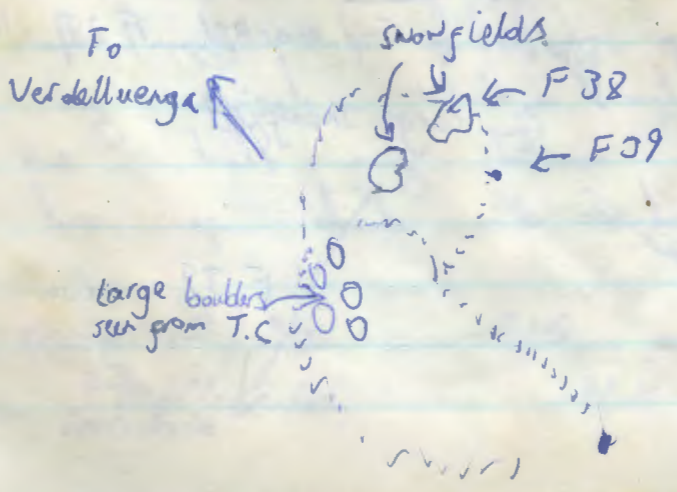 To
Verdelluenga
snowfields
F 38
F 39
Large boulders
seen from T.C